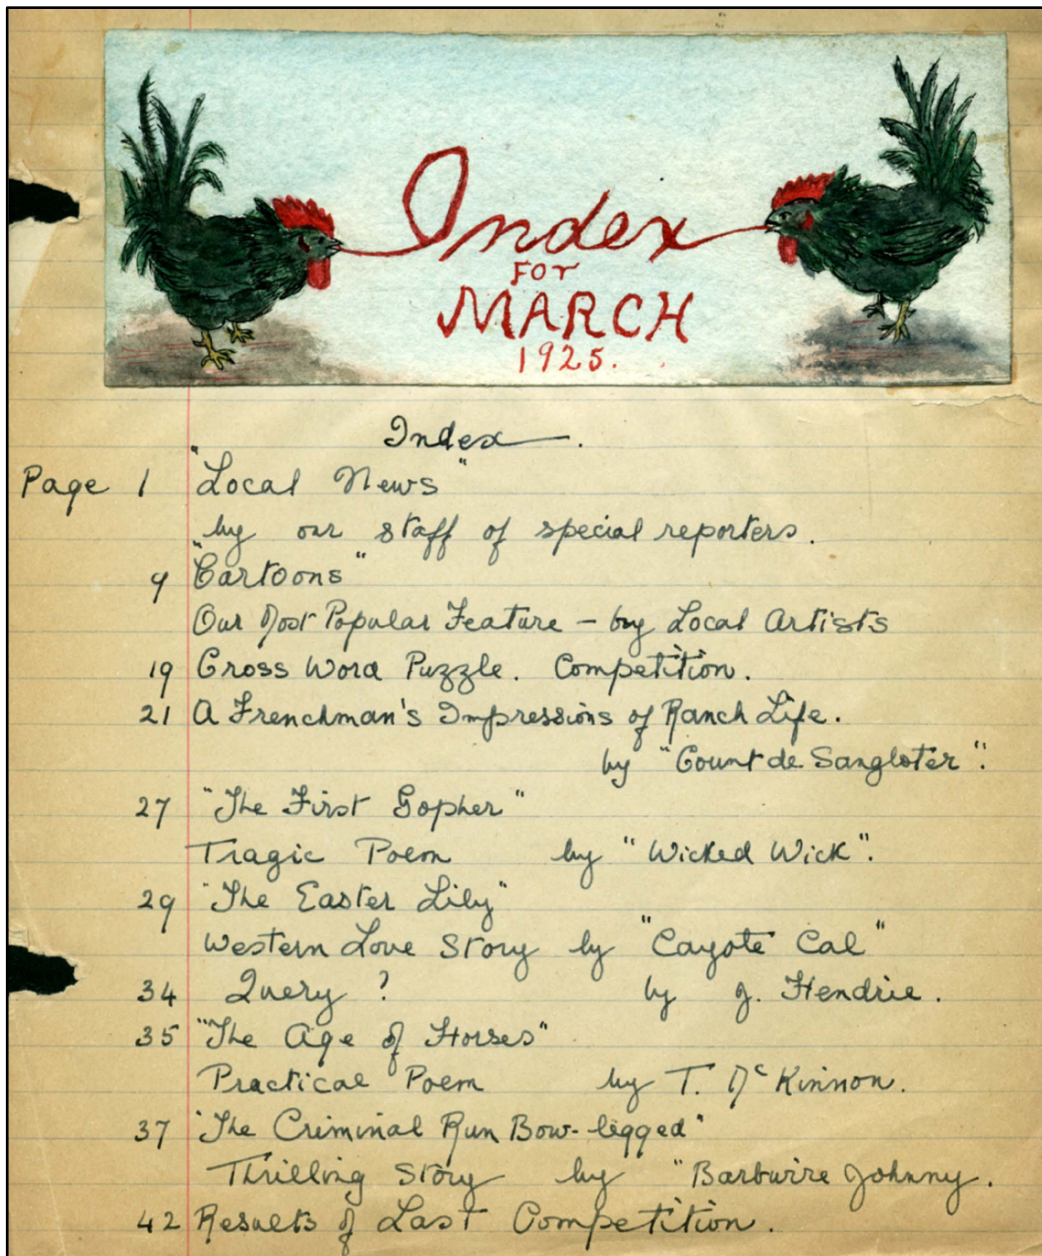 Index
FOR
MARCH
1925.
Index.
Page 1 "Local News"
"by our staff of special reporters.
9 "Cartoons"
Our Most Popular Feature - by Local Artists
19 Cross Word Puzzle. Competition.
21 A Frenchman's Impressions of Ranch Life.
by "Count de Sangloter".
27 "The First Gopher"
Tragic Poem by "Wicked Wick".
29 "The Easter Lily"
Western Love Story by "Cayote Cal"
34 Query? by J. Hendrie.
35 "The Age of Horses"
Practical Poem by T. McKinnon.
37 "The Criminal Run Bow-legged"
Thrilling Story by "Barbwire Johnny.
42 Results of Last Competition.